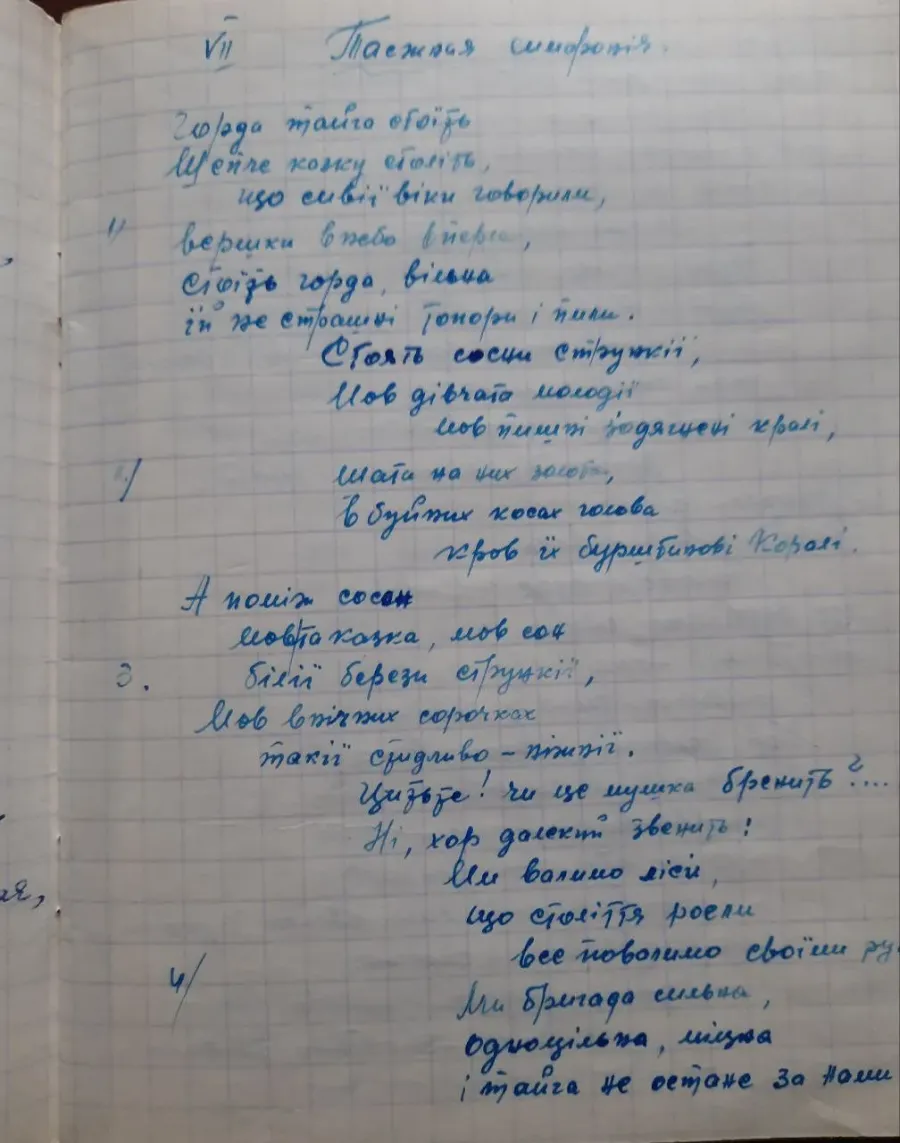 VII Таєжная симфонія.
Горда тайга стоїть
Шепче казку століть,
що сивії віки говорили,
1/ вершки в небо вперла,
Стоїть горда, вільна
їй не страшні топори і пили.
Стоять сосни стрункії,
Мов дівчата молодії
мов пишні зодягнені кралі,
2/ Шата на них золота,
в буйних косах голова
кров їх бурштинові коралі.
А поміж сосен
мов та казка, мов сон
3. білії берези стрункії,
Мов в нічних сорочках
такії стидливо – ніжнії.
Цитьте! чи це мушка бренить?....
Ні, хор далекий звенить:
Ми валимо ліси,
що століття росли
все повалимо своїми
4/ Ми бригада сильна,
одноцільна, міцна
і тайга не остане за нами
ая,